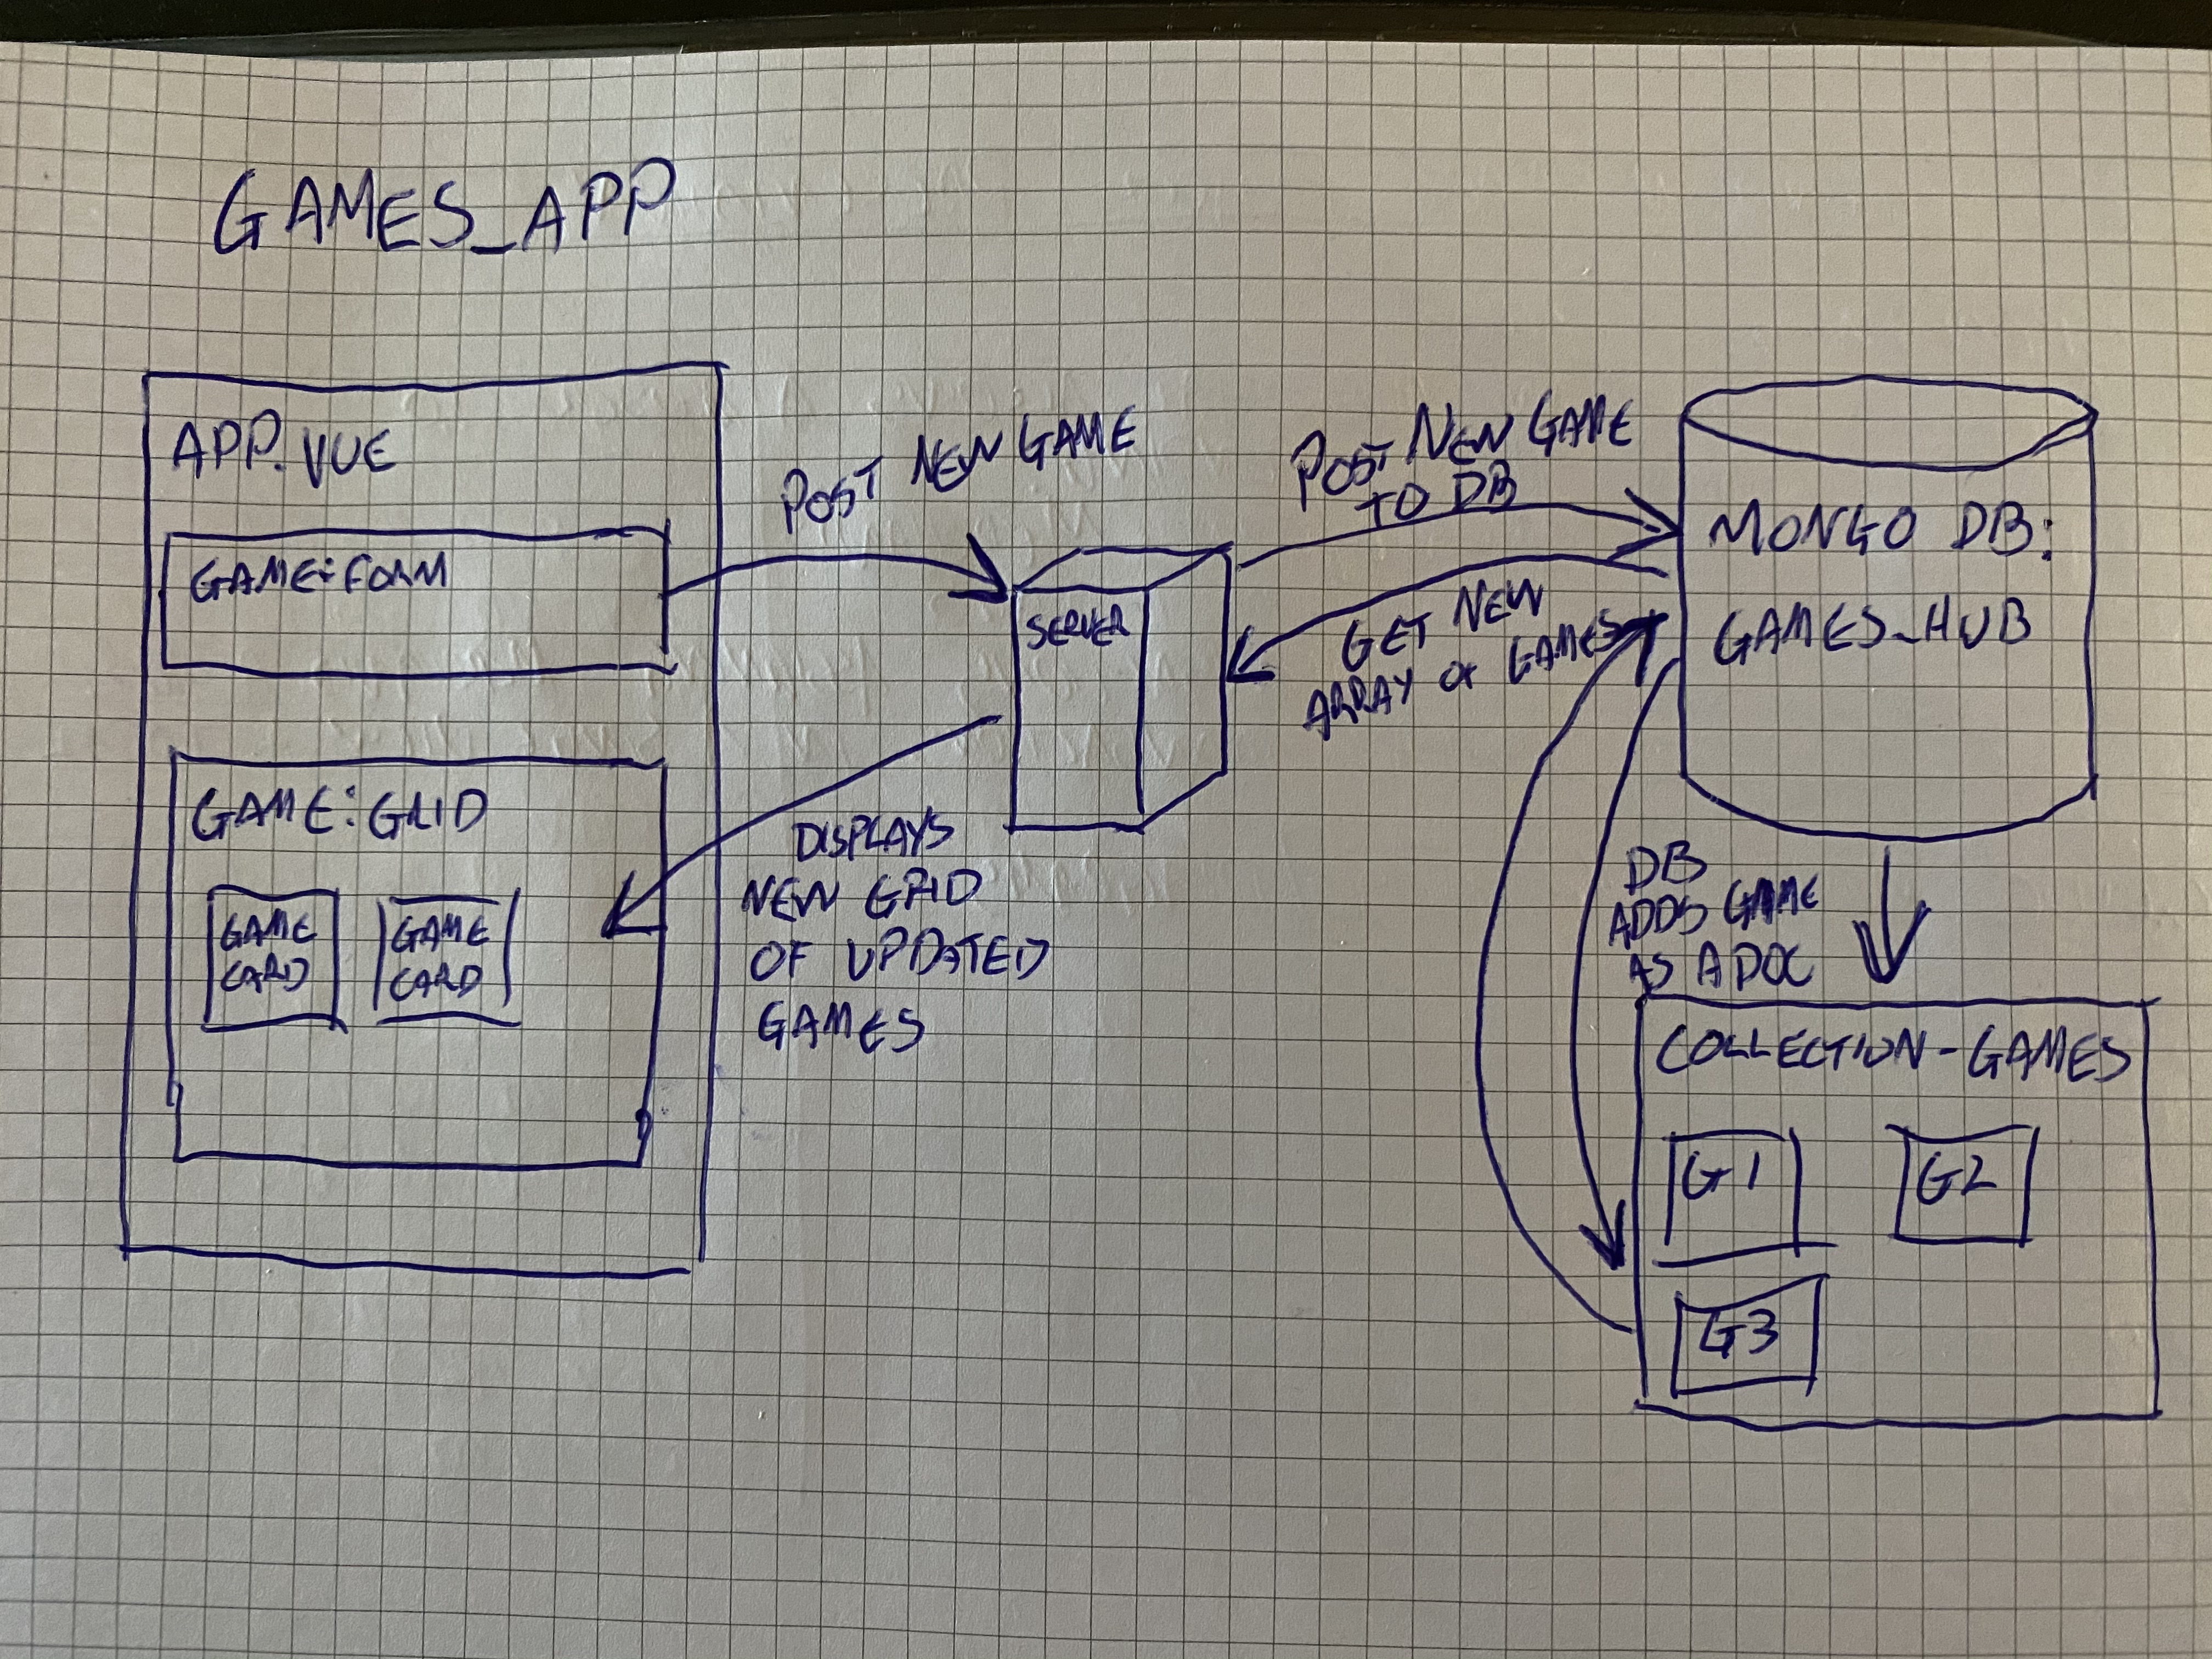 GAMES_APP
APP.VUE
GAME:FORM
GAME:GRID
GAME
CARD
GAME
CARD
POST NEW GAME
SERVER
DISPLAYS
NEW GRID
OF UPDATED
GAMES
POST NEW GAME
TO DB
GET NEW
ARRAY OF GAMES
MONGO DB:
GAMES_HUB
DB
ADDS GAME
AS A DOC
COLLECTION-GAMES
G1
G2
G3